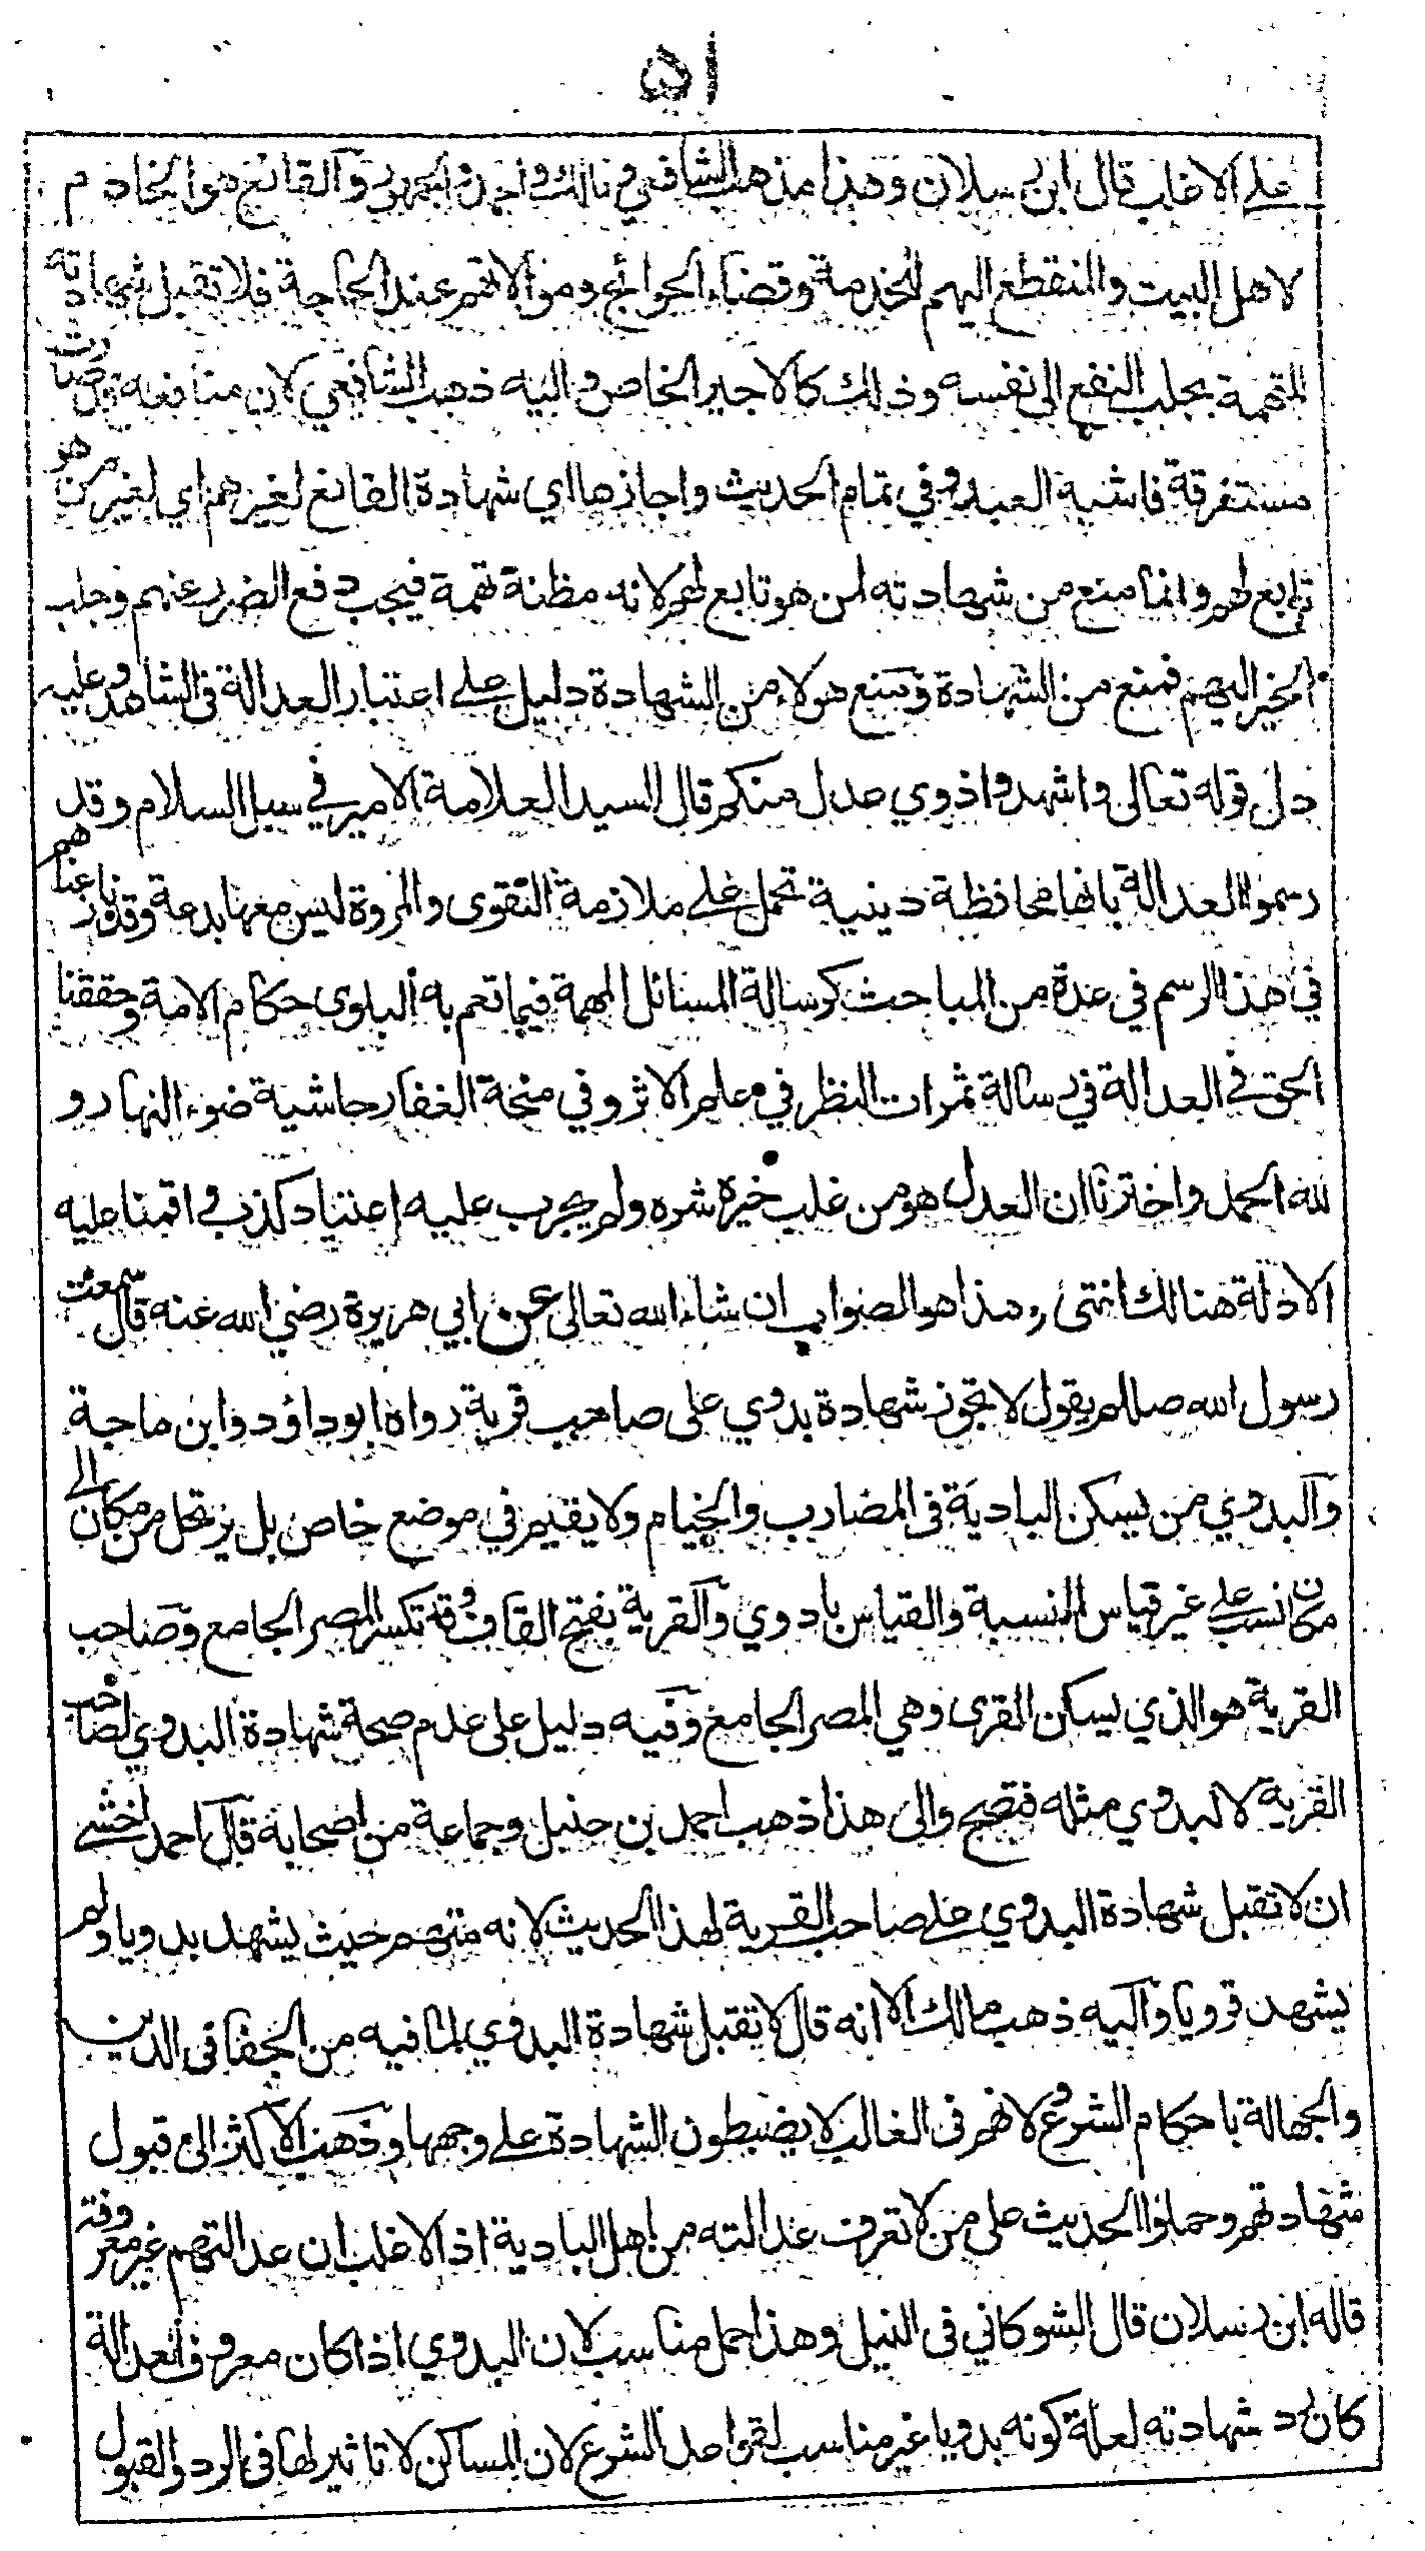 ٥١
على الاغلب قال ابن رسلان وهذا مذهب الشافعي ومالك واحمد والجمهور والقانع هو الخادم
لاهل البيت والمنقطع اليهم للخدمة وقضاء الحوائج وموالاتهم عند الحاجة فلا تقبل شهادته
للتهمة بجلب النفع الى نفسه وذلك كالاجير الخاص واليه ذهب الشافعي لان منافعه قد صارت
مستغرقة فاشبه العبد وفي تمام الحديث واجازها اي شهادة القانع لغيرهم اي لغير من هو
تابع لهم وانما منع من شهادته لمن هو تابع لهم لانه مظنة تهمة فيجب دفع الضرر عنهم وجلب
الخير اليهم فمنع من الشهادة ومنع هولاء من الشهادة دليل على اعتبار العدالة في الشاهد وعليه
دل قوله تعالى واشهدوا ذوي عدل منكم قال السيد العلامة الامير في سبل السلام وقد
رسموا العدالة بانها محافظة دينية تحمل على ملازمة التقوى والمروة ليس معها بدعة وقد نازعناهم
في هذا الرسم في عدة من المباحث كرسالة المسائل المهمة فيما تعم به البلوى حكام الامة وحققنا
الحق في العدالة في رسالة ثمرات النظر في علم الاثر وفي منحة الغفار حاشية ضوء النهار و
لله الحمد واخترنا ان العدل هو من غلب خيره شره ولم يجرب عليه اعتياد كذب واقمنا عليه
الادلة هنالك انتهى وهذا هو الصواب ان شاء الله تعالى عن ابي هريرة رضي الله عنه قال سمعت
رسول الله صللم يقول لا تجوز شهادة بدوي على صاحب قرية رواه ابو داؤد وابن ماجة
والبدوي من يسكن البادية في المضارب والخيام ولا يقيم في موضع خاص بل يرتحل من مكان الى
مكان نسب على غير قياس النسبة والقياس بادوي والقرية بفتح القاف وقد تكسر المصر الجامع وصاحب
القرية هو الذي يسكن القرى وهي المصر الجامع وفيه دليل على عدم صحة شهادة البدوي لصاحب
القرية لا لبدوي مثله فتصح والى هذا ذهب احمد بن حنبل وجماعة من اصحابه قال احمد اخشى
ان لا تقبل شهادة البدوي على صاحب القرية لهذا الحديث لانه متهم حيث يشهد بدويا ولم
يشهد قرويا واليه ذهب مالك الا انه قال لا تقبل شهادة البدوي لما فيه من الجفا في الدين
والجهالة باحكام الشروع لانهم في الغالب لا يضبطون الشهادة على وجهها وذهب الاكثر الى قبول
شهادتهم وحملوا الحديث على من لا تعرف عدالته من اهل البادية اذ الاغلب ان عدالتهم غير معروفة
قاله ابن رسلان قال الشوكاني في النيل وهذا حمل مناسب لان البدوي اذا كان معروف العدالة
كان رد شهادته لعلة كونه بدويا غير مناسب لقواعد الشرع لان المساكن لا تاثير لها في الرد والقبول